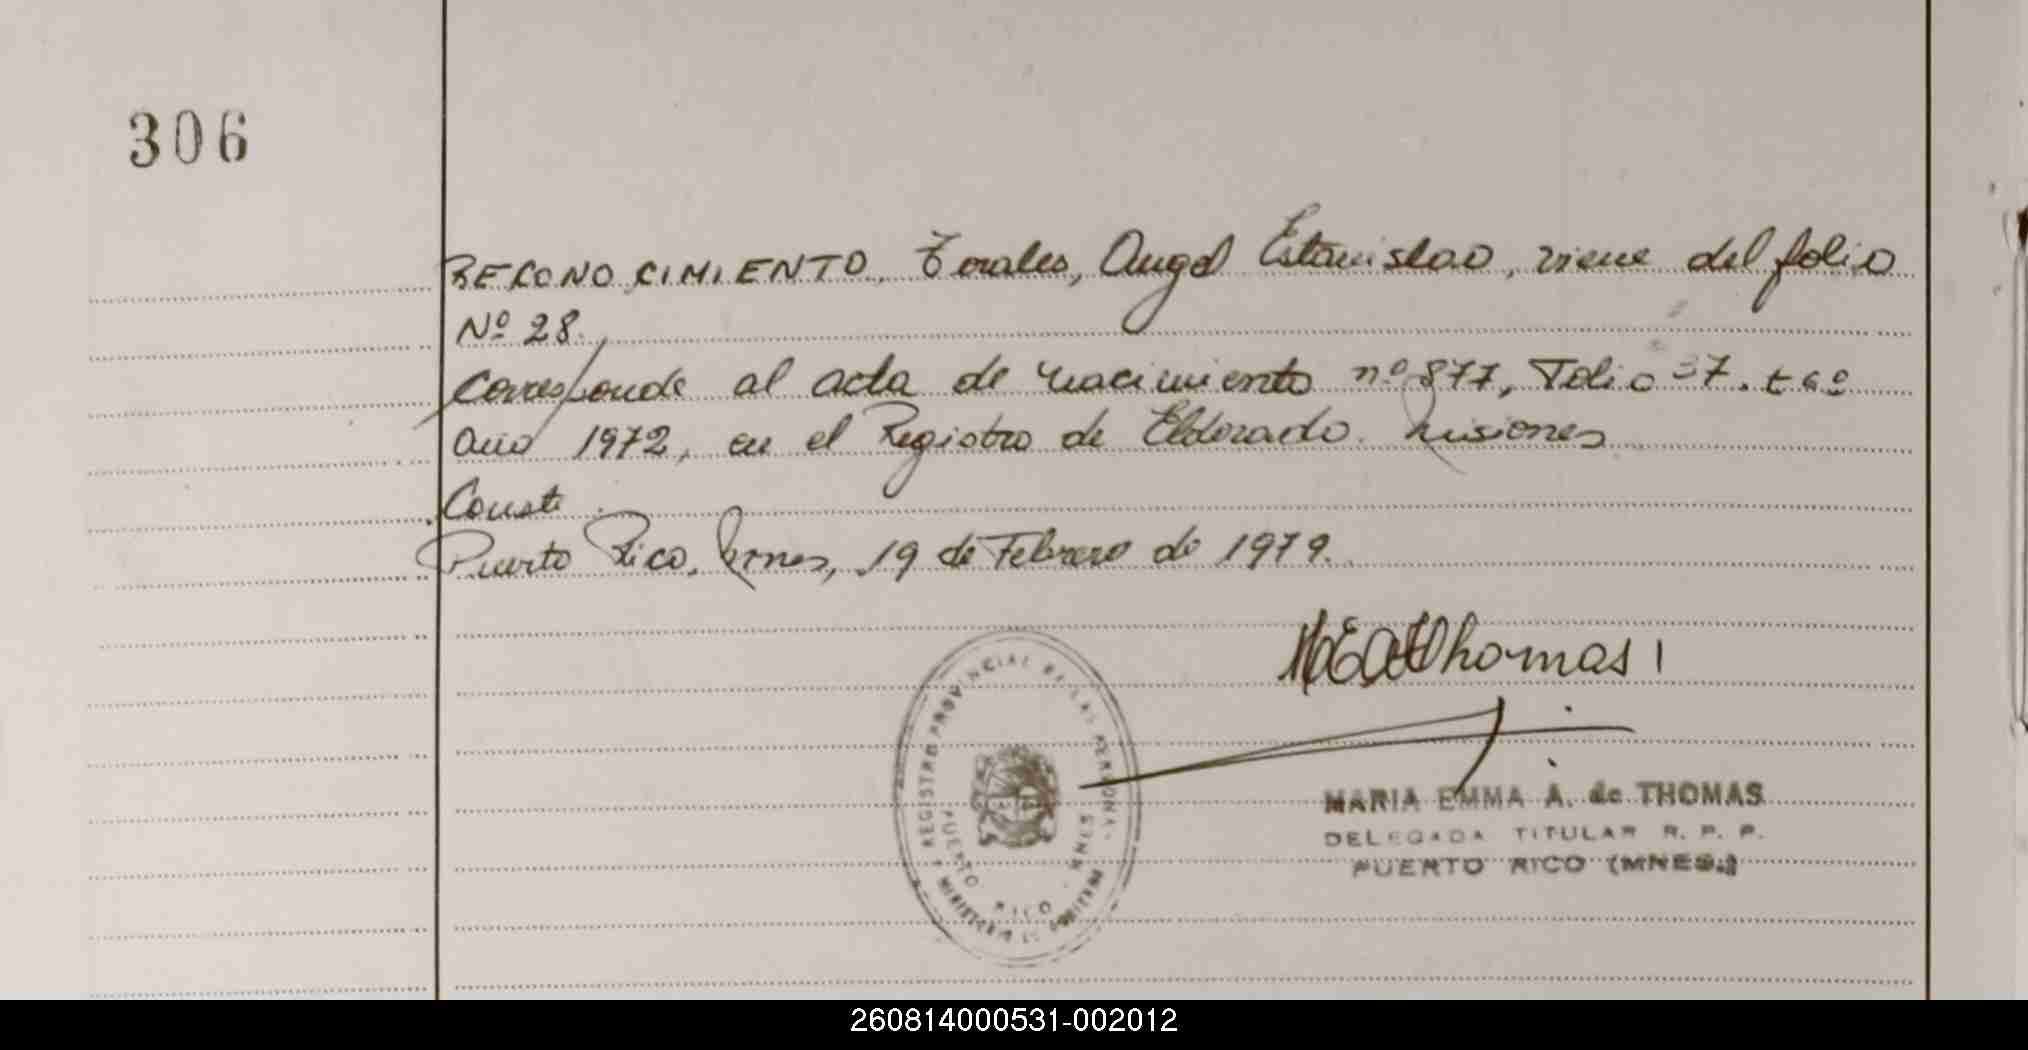 306
RECONOCIMIENTO. Torales, Angel Estanislao, viene del folio
Nº 28.
Corresponde al acta de nacimiento nº 877, Folio 37. t 6º
año 1972, en el Registro de Eldorado. Misiones
Conste.
Puerto Rico, Mnes, 19 de Febrero de 1979.
MEAdThomas
REGISTRO PROVINCIAL DE LAS PERSONAS
MINISTERIO DE GOBIERNO
PUERTO RICO - MNES
MARIA EMMA A. de THOMAS
DELEGADA TITULAR R. P. P.
PUERTO RICO (MNES.)
260814000531-002012